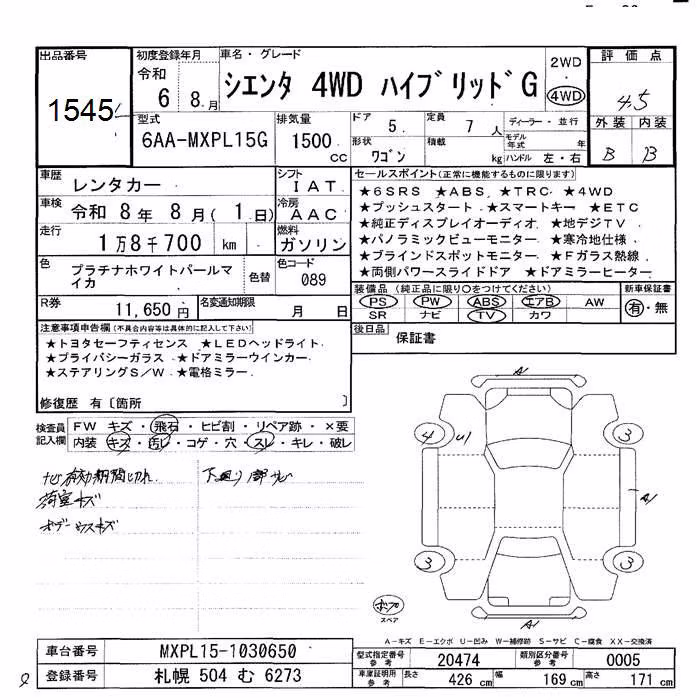 出品番号
1545
初度登録年月
令和
6 8 月
車名・グレード
シエンタ 4WD ハイブリッドG
2WD
・
4WD
評価点
4.5
外装 内装
B B
型式
6AA-MXPL15G
排気量
1500 cc
ドア 5
定員 7 人
形状 ワゴン
積載 kg
ディーラー・並行
モデル年式 年
ハンドル 左・右
車歴 レンタカー
シフト I A T
車検 令和 8年 8月( 1 日)
冷房 A A C
走行 1万8千700 km
燃料 ガソリン
色 プラチナホワイトパールマイカ
色替
色コード 089
R券 11,650円
名変通知期限 月 日
セールスポイント(正常に機能するものに限ります)
★6SRS ★ABS ★TRC ★4WD
★プッシュスタート ★スマートキー ★ETC
★純正ディスプレイオーディオ ★地デジTV
★パノラミックビューモニター ★寒冷地仕様
★ブラインドスポットモニター ★Fガラス熱線
★両側パワースライドドア ★ドアミラーヒーター
装備品 (純正品に限り○をつけてください)
PS PW ABS エアB AW
SR ナビ TV カワ
新車保証書
有・無
後日品 保証書
注意事項申告欄(不具合内容等は具体的に記入して下さい)
★トヨタセーフティセンス ★LEDヘッドライト
★プライバシーガラス ★ドアミラーウインカー
★ステアリングS/W ★電格ミラー
修復歴 有〔箇所 〕
検査員記入欄
FW キズ・飛石・ヒビ割・リペア跡・×要
内装 キズ・汚レ・コゲ・穴・スレ・キレ・破レ
ナビ有効期間切れ 下廻り部サビ
荷室キズ
ボデーウスキズ
A1
4 U1 3
A1
3 3
A1
スペア
A-キズ E-エクボ U-凹み W-補修跡 S-サビ C-腐食 XX-交換済
車台番号 MXPL15-1030650
登録番号 札幌 504 む 6273
型式指定番号 参考 20474
類別区分番号 参考 0005
車庫証明用 参考 長さ 426 cm 幅 169 cm 高さ 171 cm